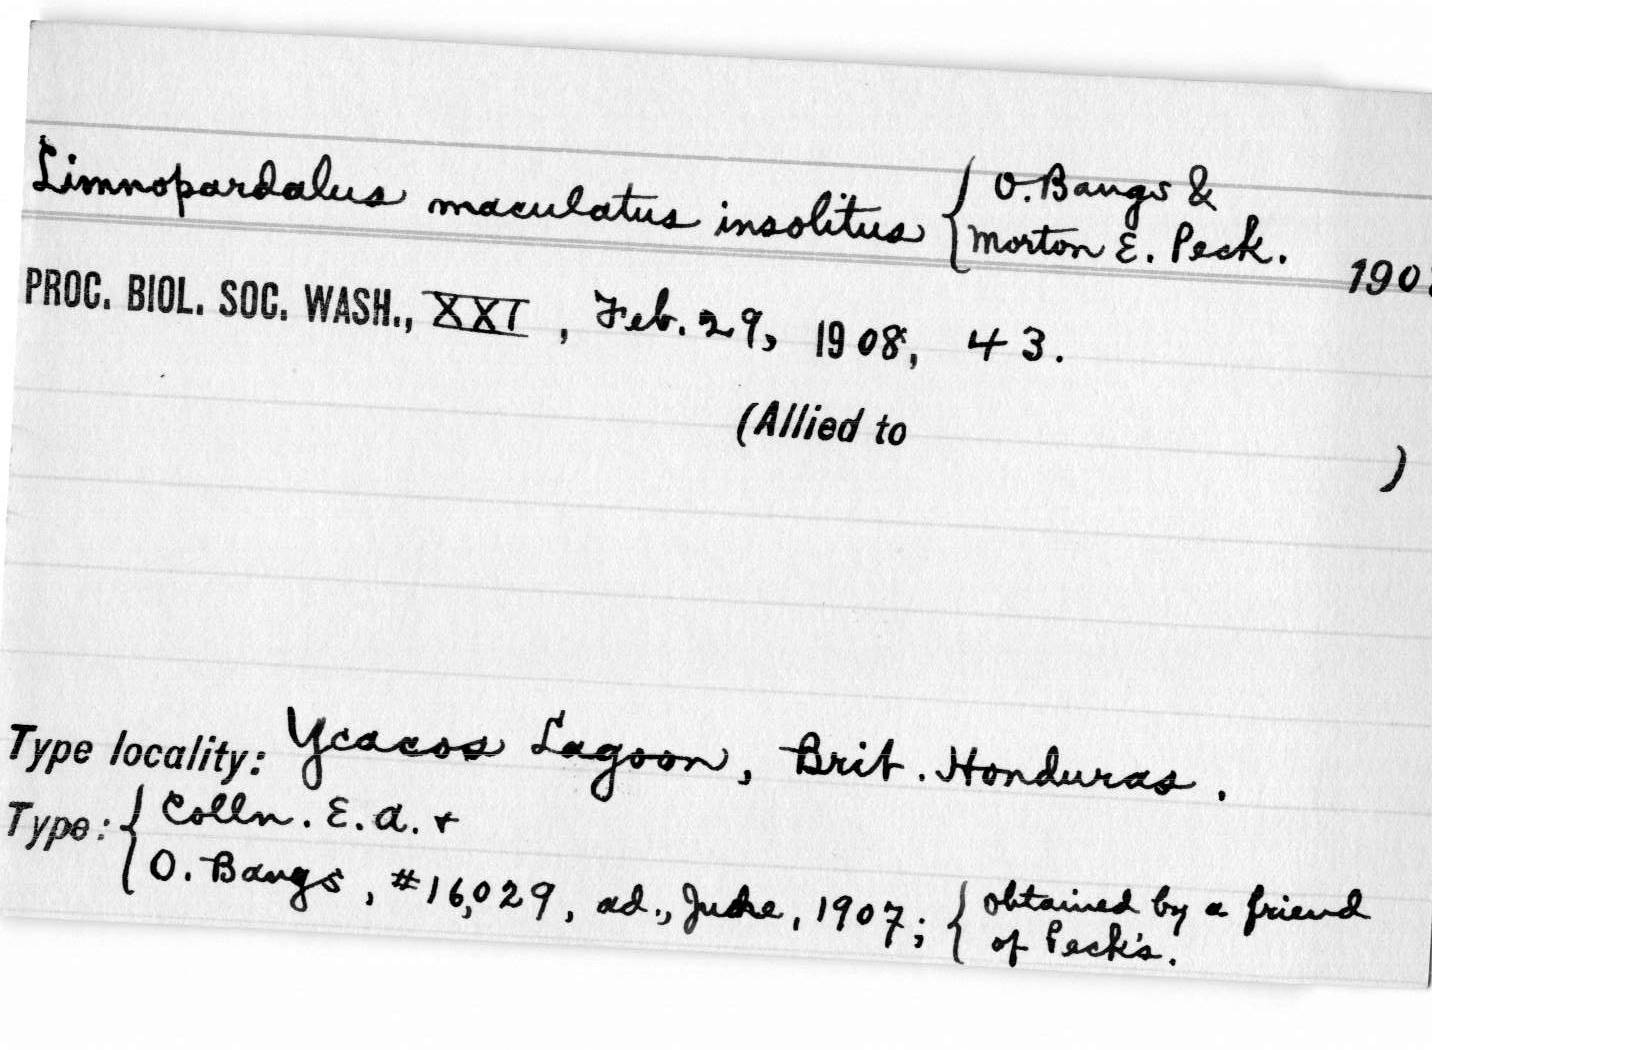 Limnopardalus maculatus insolitus { O. Bangs &
Morton E. Peck. 190
PROC. BIOL. SOC. WASH., XXI, Feb. 29, 1908, 43.
(Allied to )
Type locality: Ycacos Lagoon, Brit. Honduras.
Type: { Colln. E. A. +
O. Bangs, #16,029, ad., June, 1907; { obtained by a friend
of Peck's.